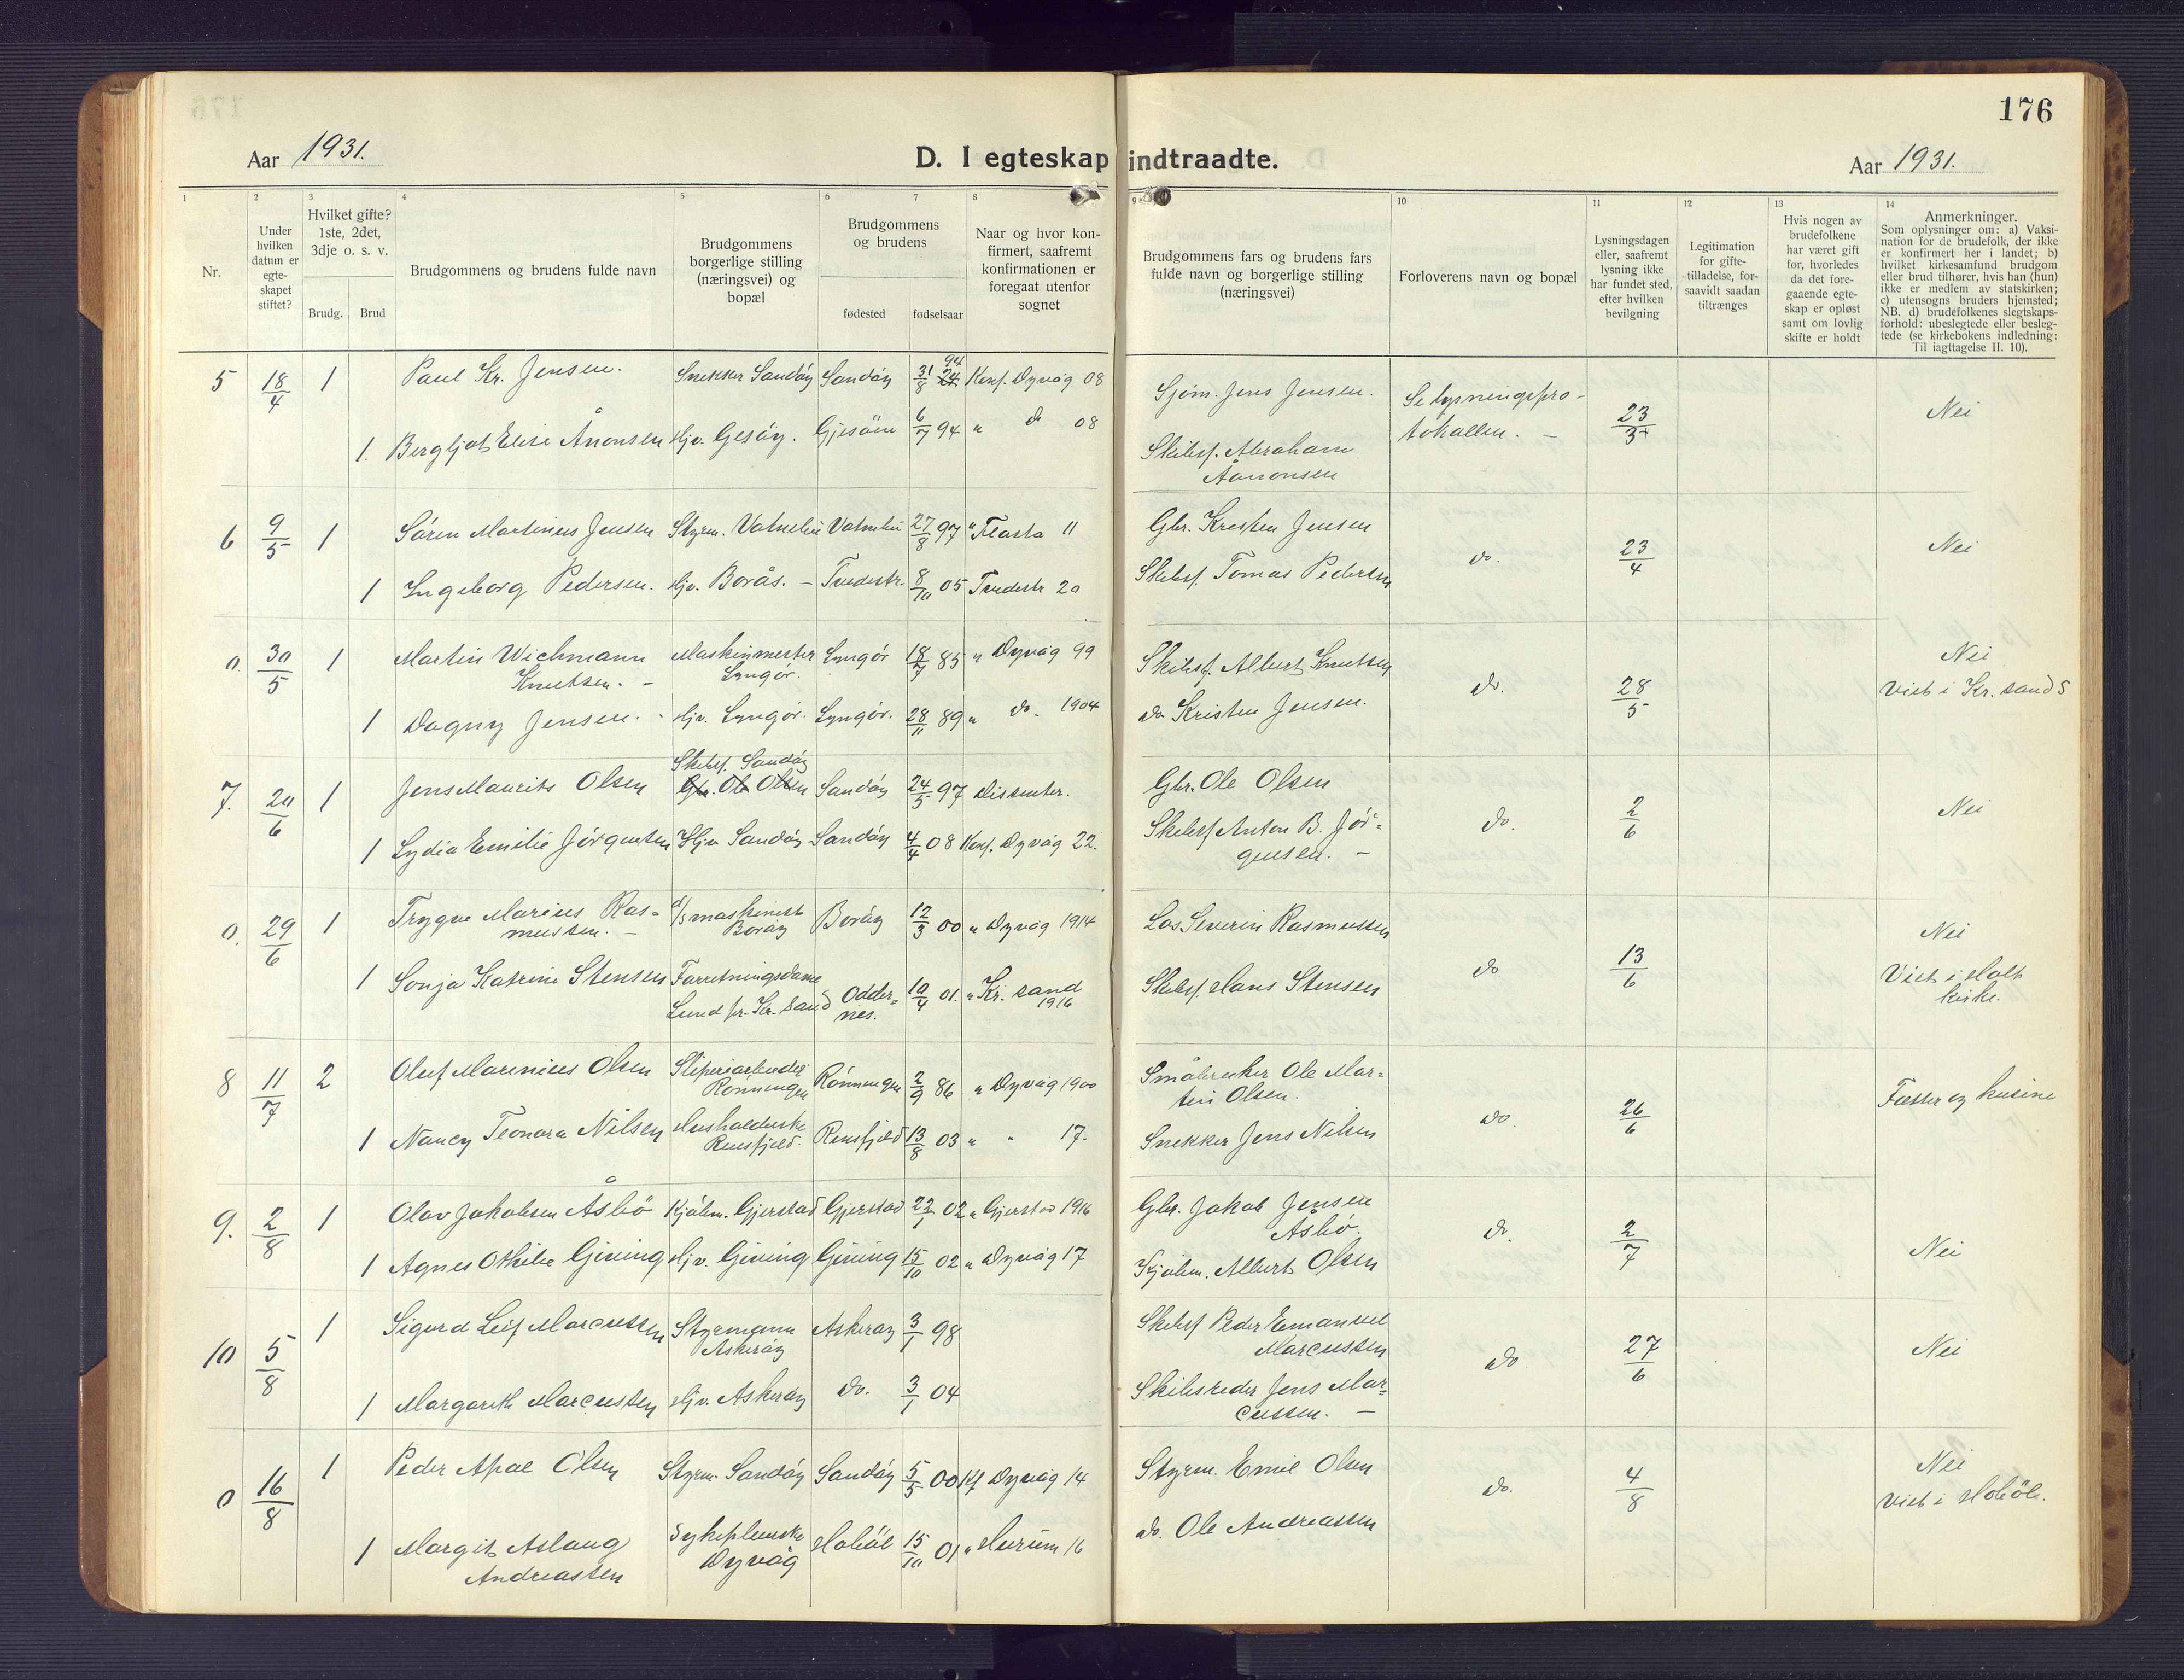 176
Aar 1931.
D. I egteskap indtraadte.
Aar 1931.
1 2 3 4 5 6 7 8 9 10 11 12 13 14
Nr.
Under hvilken datum er egte-skapet stiftet?
Hvilket gifte? 1ste, 2det, 3dje o. s. v.
Brudg. Brud
Brudgommens og brudens fulde navn
Brudgommens borgerlige stilling (næringsvei) og bopæl
Brudgommens og brudens
fødested fødselsaar
Naar og hvor kon-firmert, saafremt konfirmationen er foregaat utenfor sognet
Brudgommens fars og brudens fars fulde navn og borgerlige stilling (næringsvei)
Forloverens navn og bopæl
Lysningsdagen eller, saafremt lysning ikke har fundet sted, efter hvilken bevilgning
Legitimation for gifte-tilladelse, for-saavidt saadan tiltrænges
Hvis nogen av brudefolkene har været gift før, hvorledes da det fore-gaaende egte-skap er opløst samt om lovlig skifte er holdt
Anmerkninger.
Som oplysninger om: a) Vaksi-nation for de brudefolk, der ikke er konfirmert her i landet; b) hvilket kirkesamfund brudgom eller brud tilhører, hvis han (hun) ikke er medlem av statskirken; c) utensogns bruders hjemsted; NB. d) brudefolkenes slegtskaps-forhold: ubeslegtede eller besleg-tede (se kirkebokens indledning: Til iagttagelse II. 10).
5 18/4 1 Paul Kr. Jensen. Snekker Sandøy Sandøy 31/8 94 Konf. Dyvåg 08 Sjøm. Jens Jensen. Se lysningspro-tokollen. – 23/3 Nei
1. Bergljot Elise Ånonsen Hjv. Gesøy. Gjesöen 6/7 94 " do 08 Skibsf. Abraham
Åanonsen
6 9/5 1 Sören Martinius Jensen Styrm. Vatnebu Vatnebu 27/8 97 " Flosta 11 Gbr. Kresten Jensen do. 23/4 Nei
1 Ingeborg Pedersen. Hjv. Borås. – Tvedestr. 8/10 05 Tvedestr 20 Skibsf. Tomas Pedersen
0. 30/5 1 Martin Wichmann Maskinmester Lyngör 18/7 85 " Dyvåg 99 Skibsf. Albert Knutsen do. 28/5 Nei
Knutsen. – Lyngör. Viet i Kr. sand S
1 Dagny Jensen. Hjv. Lyngör. Lyngör. 28/11 89 " do. 1904 do Kristen Jensen.
Skibsf. Sandöy
7. 20/6 1 Jens Maurits Olsen Gbr. Ole Olsen Sandöy 24/5 97 dissenter. Gbr. Ole Olsen do. 2/6 Nei
1 Lydia Emilie Jörgensen Hjv Sandöy Sandöy 4/4 08 Konf. Dyvåg 22. Skibsf Anton B. Jör-
gensen. –
0. 29/6 1 Trygve Marius Ras- d/s maskinist Boröy 12/3 00 " Dyvåg 1914 Los Severin Rasmussen do 13/6 Nei
mussen. – Boröy
1 Sonja Katrine Stensen Forretningsdame Odder- 10/4 01. " Kr. sand Skibsf. Hans Stensen Viet i Holt
Lund pr. Kr. Sand S nes. 1916 kirke.
8 11/7 2 Oluf Marinius Olsen Sliperiarbeider Rönningen 2/9 86 " Dyvåg 1900 Småbruker Ole Mar- do 26/6 Fætter og kusine
Rönningen tin Olsen.
1 Nancy Teonora Nilsen Husholderske Rensfjeld 13/8 03 " " 17. Snekker Jens Nilsen
Rensfjeld.
9. 2/8 1 Olav Jakobsen Åsbö Kjöbm. Gjerstad Gjerstad 22/1 02 " Gjerstad 1916 Gbr. Jakob Jensen do. 2/7 Nei
Åsbö.
1 Agnes Othilie Giving Hjv. Giving Giving 15/10 02 " Dyvåg 17 Kjöbm. Albert Olsen
10 5/8 1 Sigurd Leif Marcussen Styrmann Askeröy 3/1 98 Skibsf Peder Emanuel do 27/6 Nei
Askeröy Marcussen
1 Margareth Marcussen Hjv. Askeröy do. 3/1 04 Skibsreder Jens Mar-
cussen. –
0 16/8 1 Peder Apal Olsen Styrm. Sandöy Sandöy 5/5 00 Kf Dyvåg 14 Styrm. Emil Olsen do. 4/8 Nei
Viet i Hobøl.
1 Margit Aslaug Sykepleierske Hobøl 15/10 01 " Hurum 16 do. Ole Andreassen
Andreassen Dyvåg